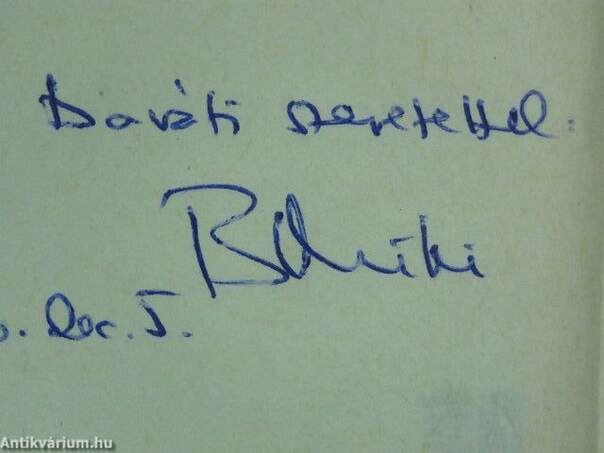 Baráti szeretettel:
dec. 5.
Antikvárium.hu